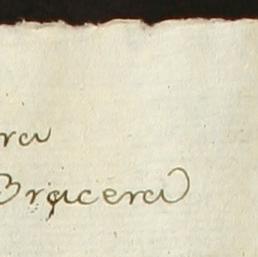 ra
Bracera